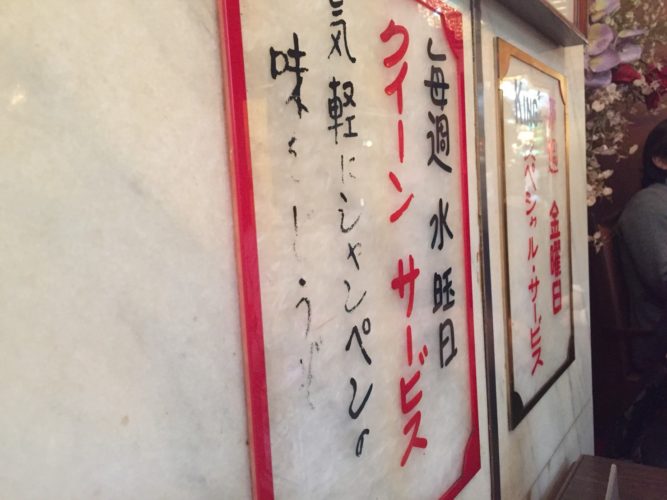 毎週 水旺日
クイーン サービス
気軽にシャンペンの
味をどうぞ
毎週 金曜日
KING
スペシャル・サービス